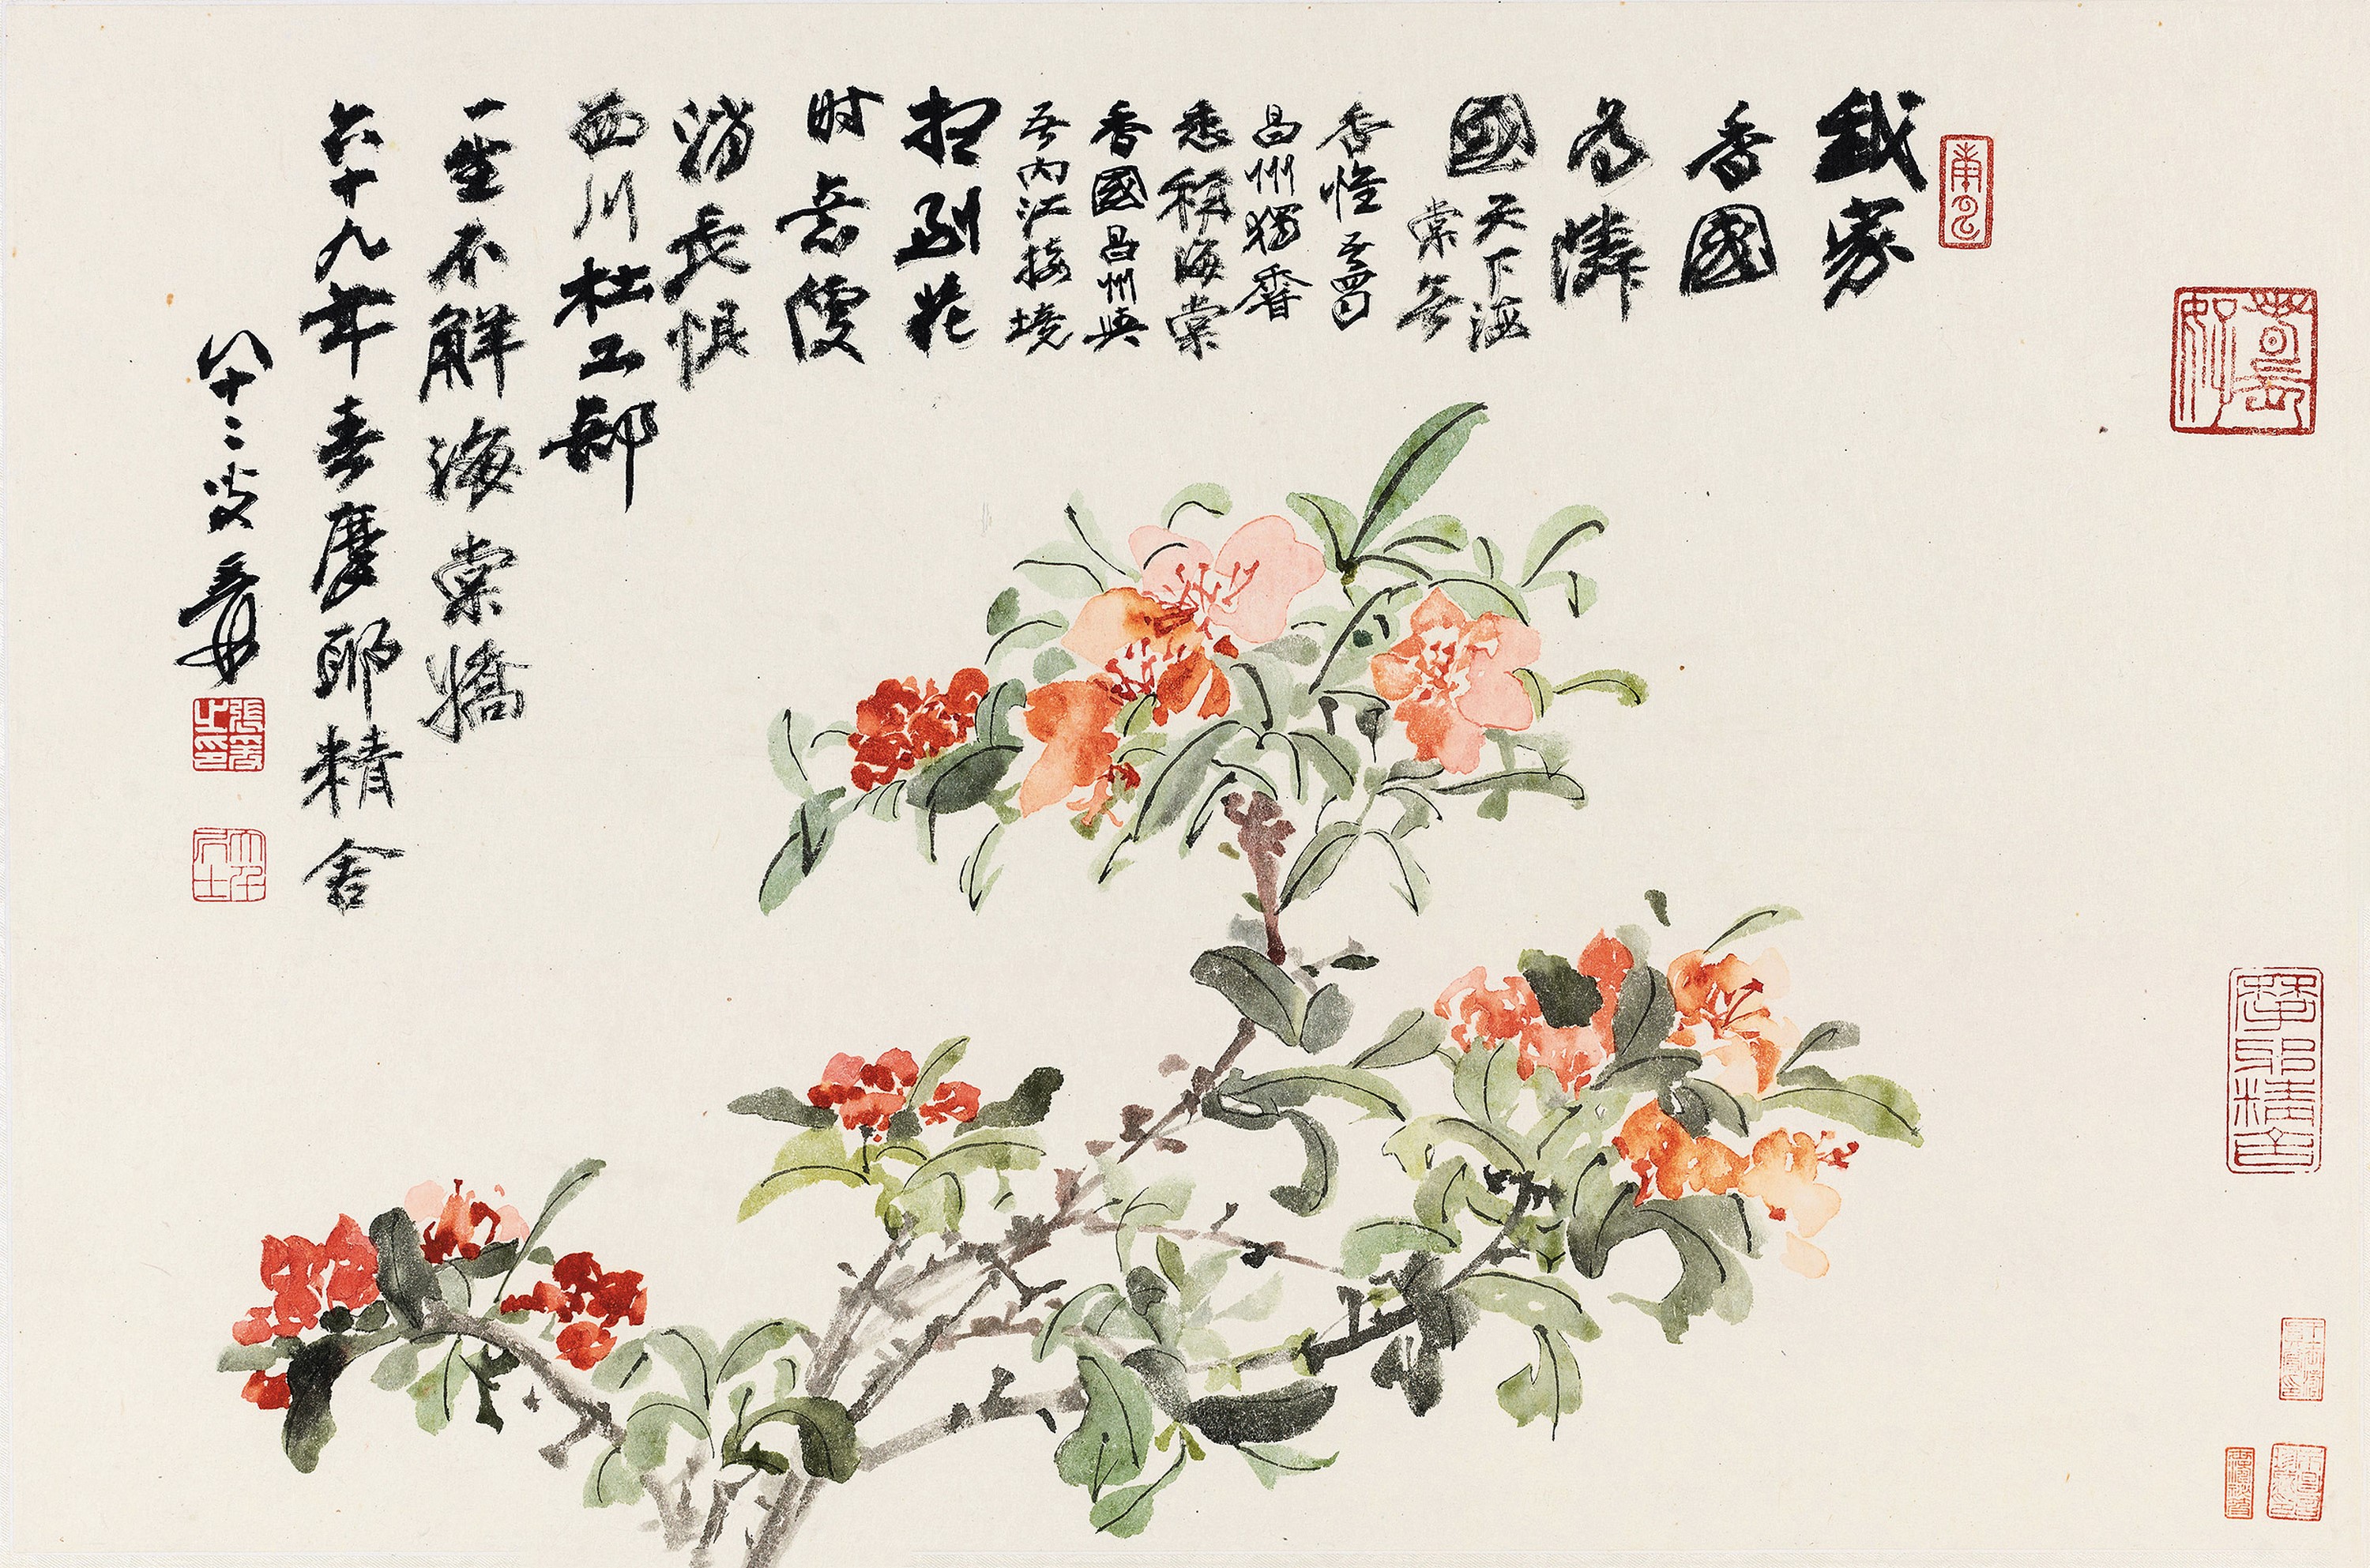 庚申
我家
香國
為隣
國
天下海
棠無
香惟吾蜀
昌州獨香
悉稱海棠
香國昌州與
吾內江接境
想到花
时意便
消長恨
西川杜工部
一生不解海棠嬌
六十九年春摩耶精舍
八十二叟爰
張爰之印
大千居士
摩耶精舍